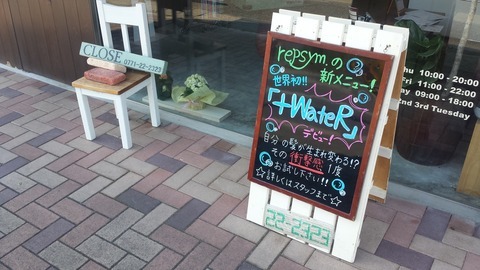 CLOSE
0771-22-2323
repsym.の
新メニュー!
世界初!!
「+WateR」
デビュー!
自分の髪が生まれ変わる!?
その衝撃感1度
お試し下さい!!
☆詳しくはスタッフまで☆
22-2323
Thu 10:00 - 20:00
Fri 11:00 - 22:00
09:00 - 18:00
2nd 3rd Tuesday